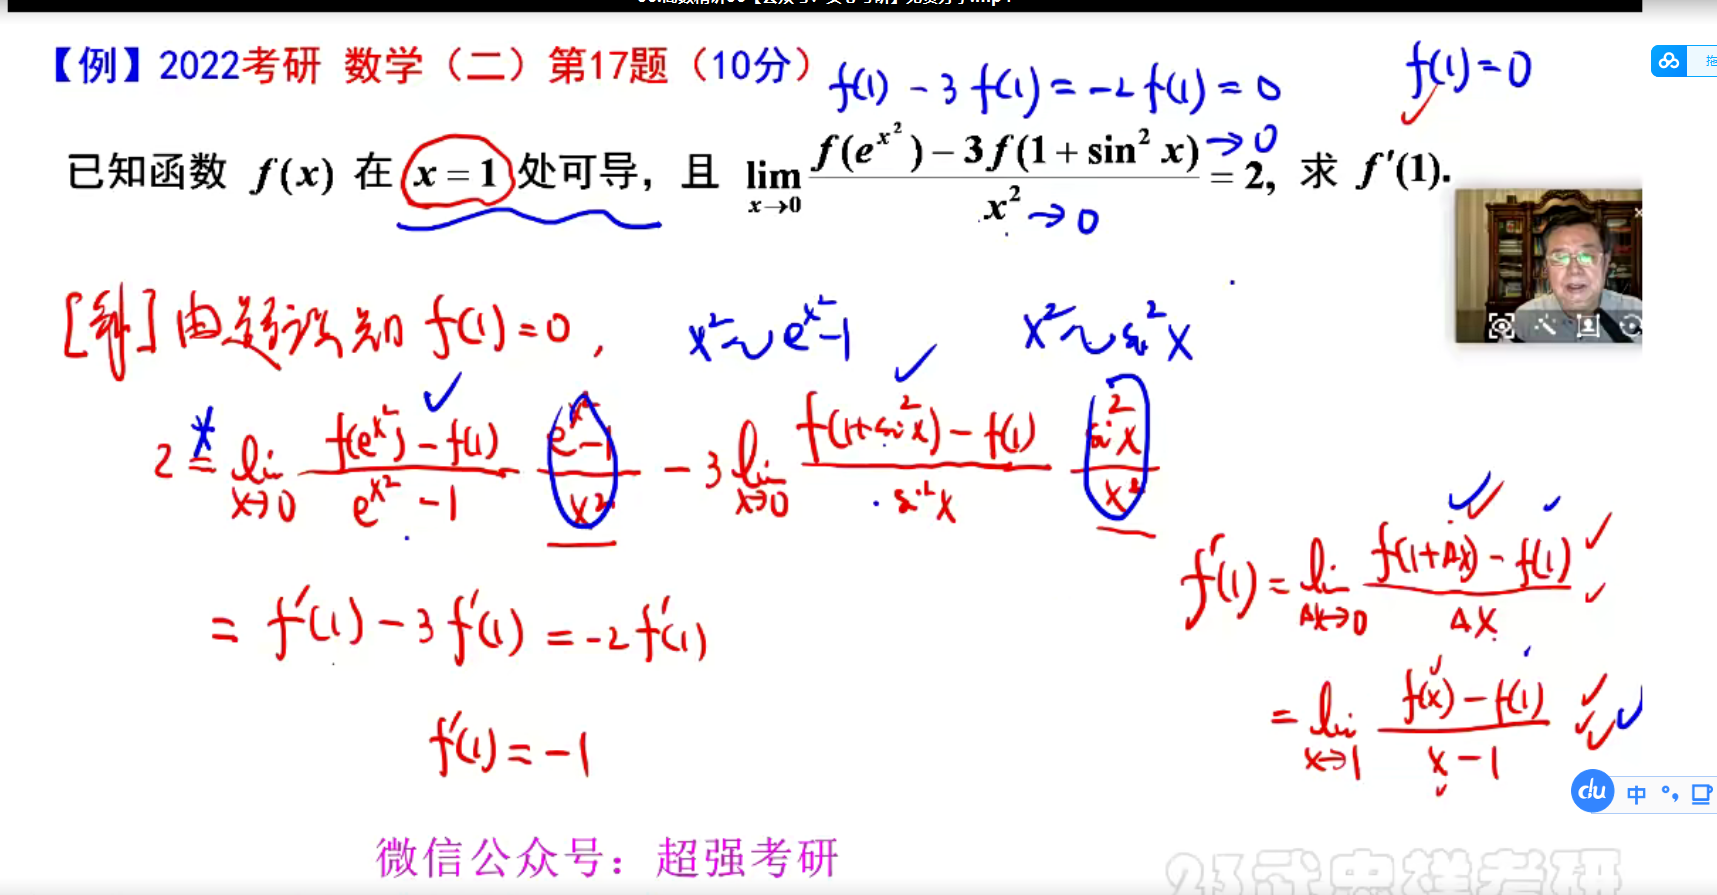 【例】2022考研 数学（二）第17题（10分）
f(1) - 3 f(1) = -2 f(1) = 0
f(1) = 0
已知函数 f(x) 在 x = 1 处可导，且 lim_{x→0} [f(e^{x²}) − 3f(1 + sin² x)] / x² = 2, 求 f′(1).
→0
→0
[解] 由题设知 f(1) = 0 ,
x² ~ e^{x²}-1
x² ~ sin² x
2 = lim_{x→0} [f(e^{x²}) - f(1)] / [e^{x²} - 1] · [e^{x²} - 1] / x² - 3 lim_{x→0} [f(1+sin² x) - f(1)] / sin² x · sin² x / x²
= f′(1) - 3 f′(1) = -2 f′(1)
f′(1) = -1
f′(1) = lim_{Δx→0} [f(1+Δx) - f(1)] / Δx
= lim_{x→1} [f(x) - f(1)] / [x - 1]
微信公众号：超强考研
du 中 °,